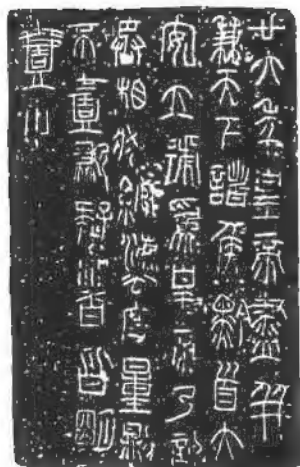 廿六年皇帝盡并
兼天下諸侯黔首大
安立號爲皇帝乃詔
丞相狀綰法度量則
不壹歉疑者皆明
壹之